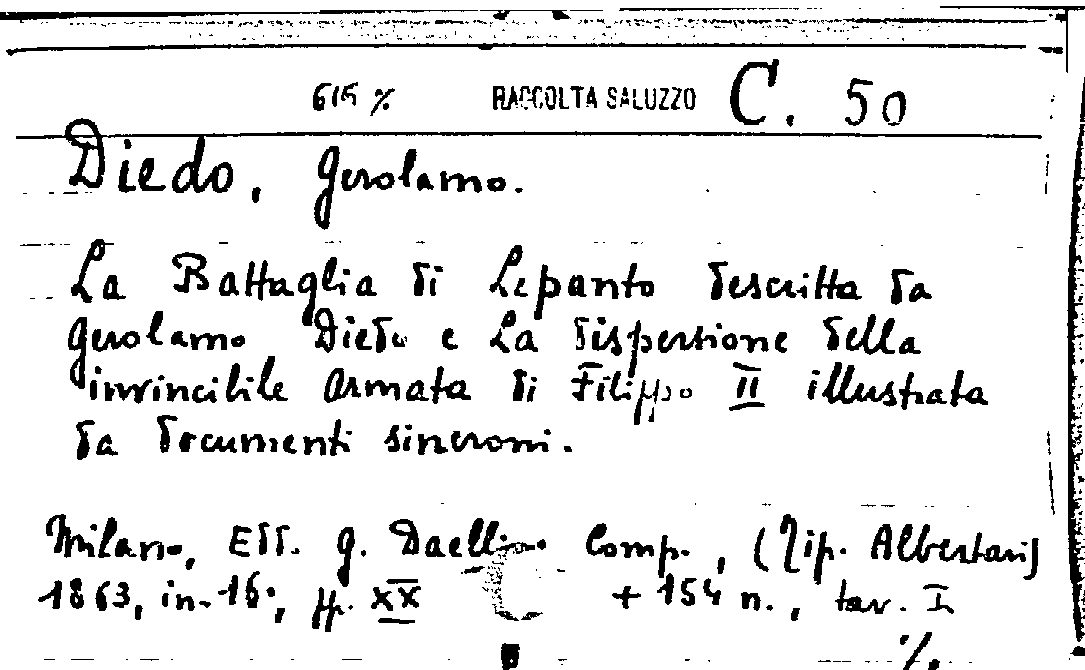 615 % RACCOLTA SALUZZO C. 50
Diedo, Gerolamo.
La Battaglia di Lepanto descritta da
Gerolamo Diedo e La dispersione della
invincibile armata di Filippo II illustrata
da documenti sincroni.
Milano, Edd. G. Daelli e Comp., (Tip. Albertari)
1863, in-16°, pp. XX + 154 n., tav. I
./.